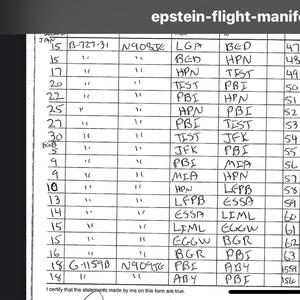 epstein-flight-manife
JAN
15 B-727-31 N908JE LGA BED 47
15 " " BED HPN 48
17 " " HPN TIST 49
20 " " TIST PBI 50
22 " " PBI HPN 51
25 " " HPN PBI 52
27 " " PBI TIST 53
30 " " TIST JFK 54
FEB
5 " " JFK PBI 55
9 " " PBI MIA 56
9 " " MIA HPN 57
10 " " HPN LFPB 58
13 " " LFPB ESSA 59
14 " " ESSA LIML 60
15 " " LIML EGGW 61
15 " " EGGW BGR 62
16 " " BGR PBI 63
18 G-1159B N909JE PBI ABY 1559
18 " " ABY PBI 156
I certify that the statements made by me on this form are true.